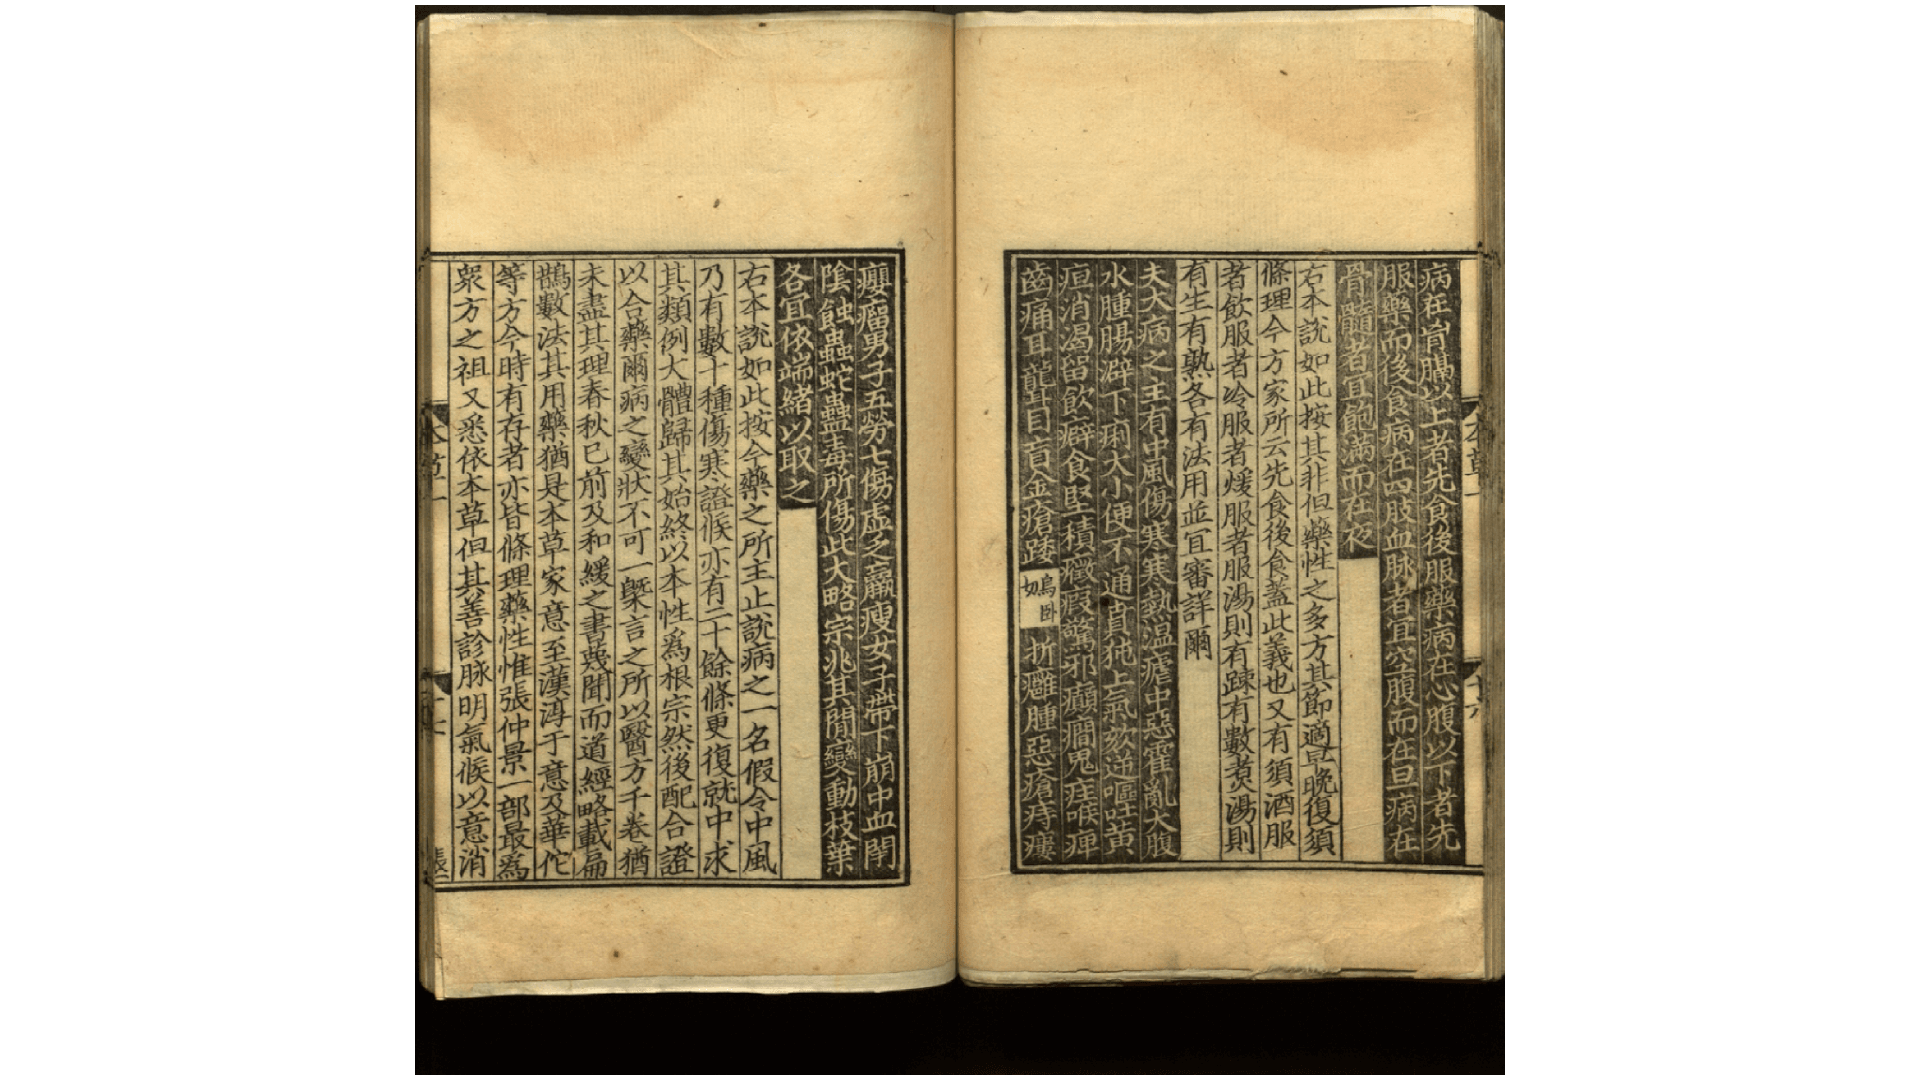 病在胷膈以上者先食後服藥病在心腹以下者先
服藥而後食病在四肢血脉者宜空腹而在旦病在
骨髓者宜飽滿而在夜
右本說如此按其非但藥性之多方其節適早晚復須
條理今方家所云先食後食蓋此義也又有須酒服
者飲服者冷服者煖服者服湯則有踈有數煑湯則
有生有熟各有法用並宜審詳爾
夫大病之主有中風傷寒寒熱温瘧中惡霍亂大腹
水腫腸澼下痢大小便不通賁㹠上氣欬逆嘔吐黃
疸消渴留飲癖食堅積癥瘕驚邪癲癎鬼疰喉痺
齒痛耳聾目盲金瘡踒
烏卧
折癰腫惡瘡痔瘻
本草一
十六
癭瘤男子五勞七傷虛乏羸瘦女子帶下崩中血閉
隂蝕蟲蛇蠱毒所傷此大略宗兆其閒變動枝葉
各宜依端緒以取之
右本說如此按今藥之所主止說病之一名假令中風
乃有數十種傷寒證候亦有二十餘條更復就中求
其類例大體歸其始終以本性爲根宗然後配合證
以合藥爾病之變狀不可一槩言之所以醫方千卷猶
未盡其理春秋已前及和緩之書蔑聞而道經略載扁
鵲數法其用藥猶是本草家意至漢淳于意及華佗
等方今時有存者亦皆條理藥性惟張仲景一部最爲
衆方之祖又悉依本草但其善診脉明氣候以意消
本草一
十七